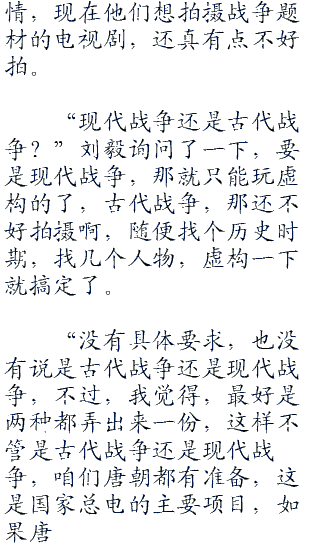 情，现在他们想拍摄战争题
材的电视剧，还真有点不好
拍。
“现代战争还是古代战
争？”刘毅询问了一下，要
是现代战争，那就只能玩虚
构的了，古代战争，那还不
好拍摄啊，随便找个历史时
期，找几个人物，虚构一下
就搞定了。
“没有具体要求，也没
有说是古代战争还是现代战
争，不过，我觉得，最好是
两种都弄出来一份，这样不
管是古代战争还是现代战
争，咱们唐朝都有准备，这
是国家总电的主要项目，如
果唐